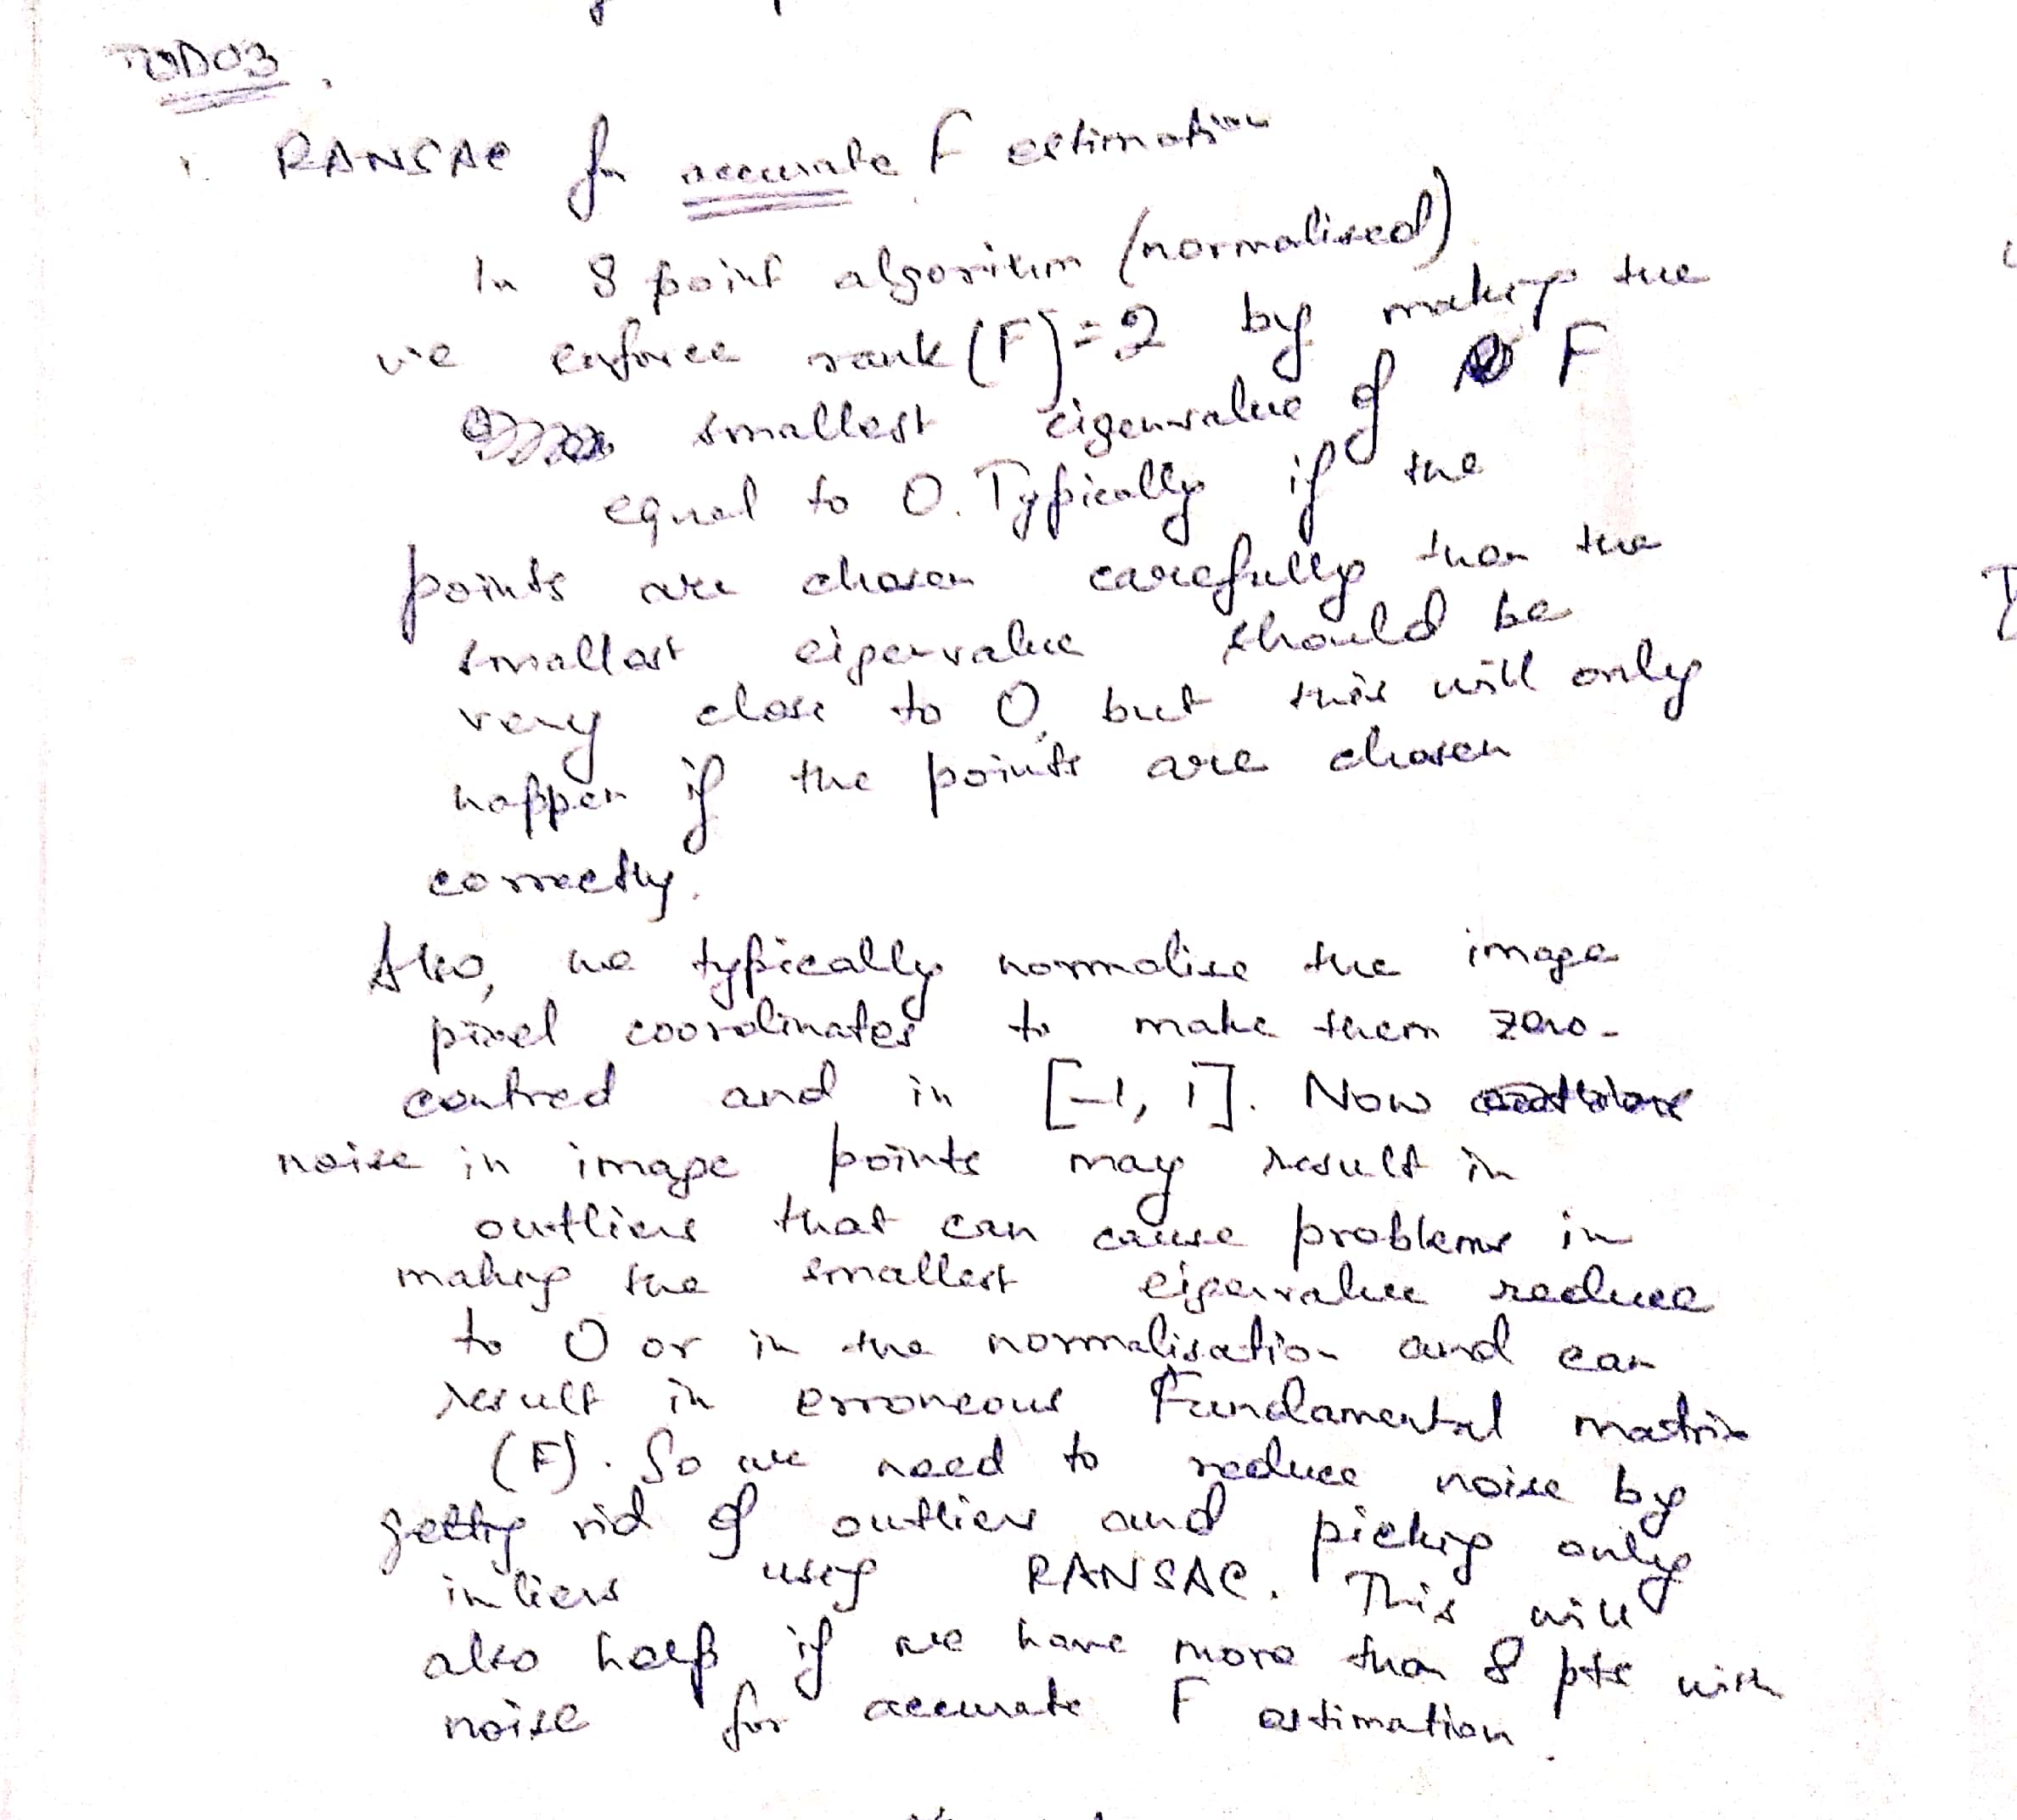 TODO3.
1. RANSAC for accurate F estimation
In 8 point algorithm (normalised)
we enforce rank(F)=2 by making the
smallest eigenvalue of F
equal to 0. Typically if the
points are chosen carefully then the
smallest eigenvalue should be
very close to 0, but this will only
happen if the points are chosen
correctly.
Also, we typically normalise the image
pixel coordinates to make them zero-
centred and in [-1, 1]. Now
noise in image points may result in
outliers that can cause problems in
making the smallest eigenvalue reduce
to 0 or in the normalisation and can
result in erroneous Fundamental matrix
(F). So we need to reduce noise by
getting rid of outliers and picking only
inliers using RANSAC. This will
also help if we have more than 8 pts with
noise for accurate F estimation.